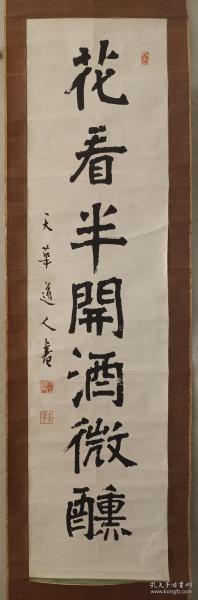 花看半開酒微醺
天華道人書
孔夫子旧书网